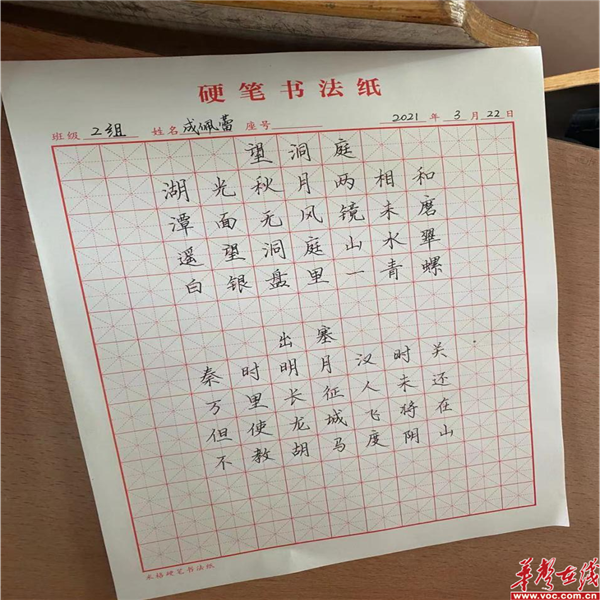 硬笔书法纸
班级 2组 姓名 成佩蕾 座号 2021 年 3 月 22 日
望洞庭
湖光秋月两相和
潭面无风镜未磨
遥望洞庭山水翠
白银盘里一青螺
出塞
秦时明月汉时关
万里长征人未还
但使龙城飞将在
不教胡马度阴山
米格硬笔书法纸
华声在线
www.voc.com.cn